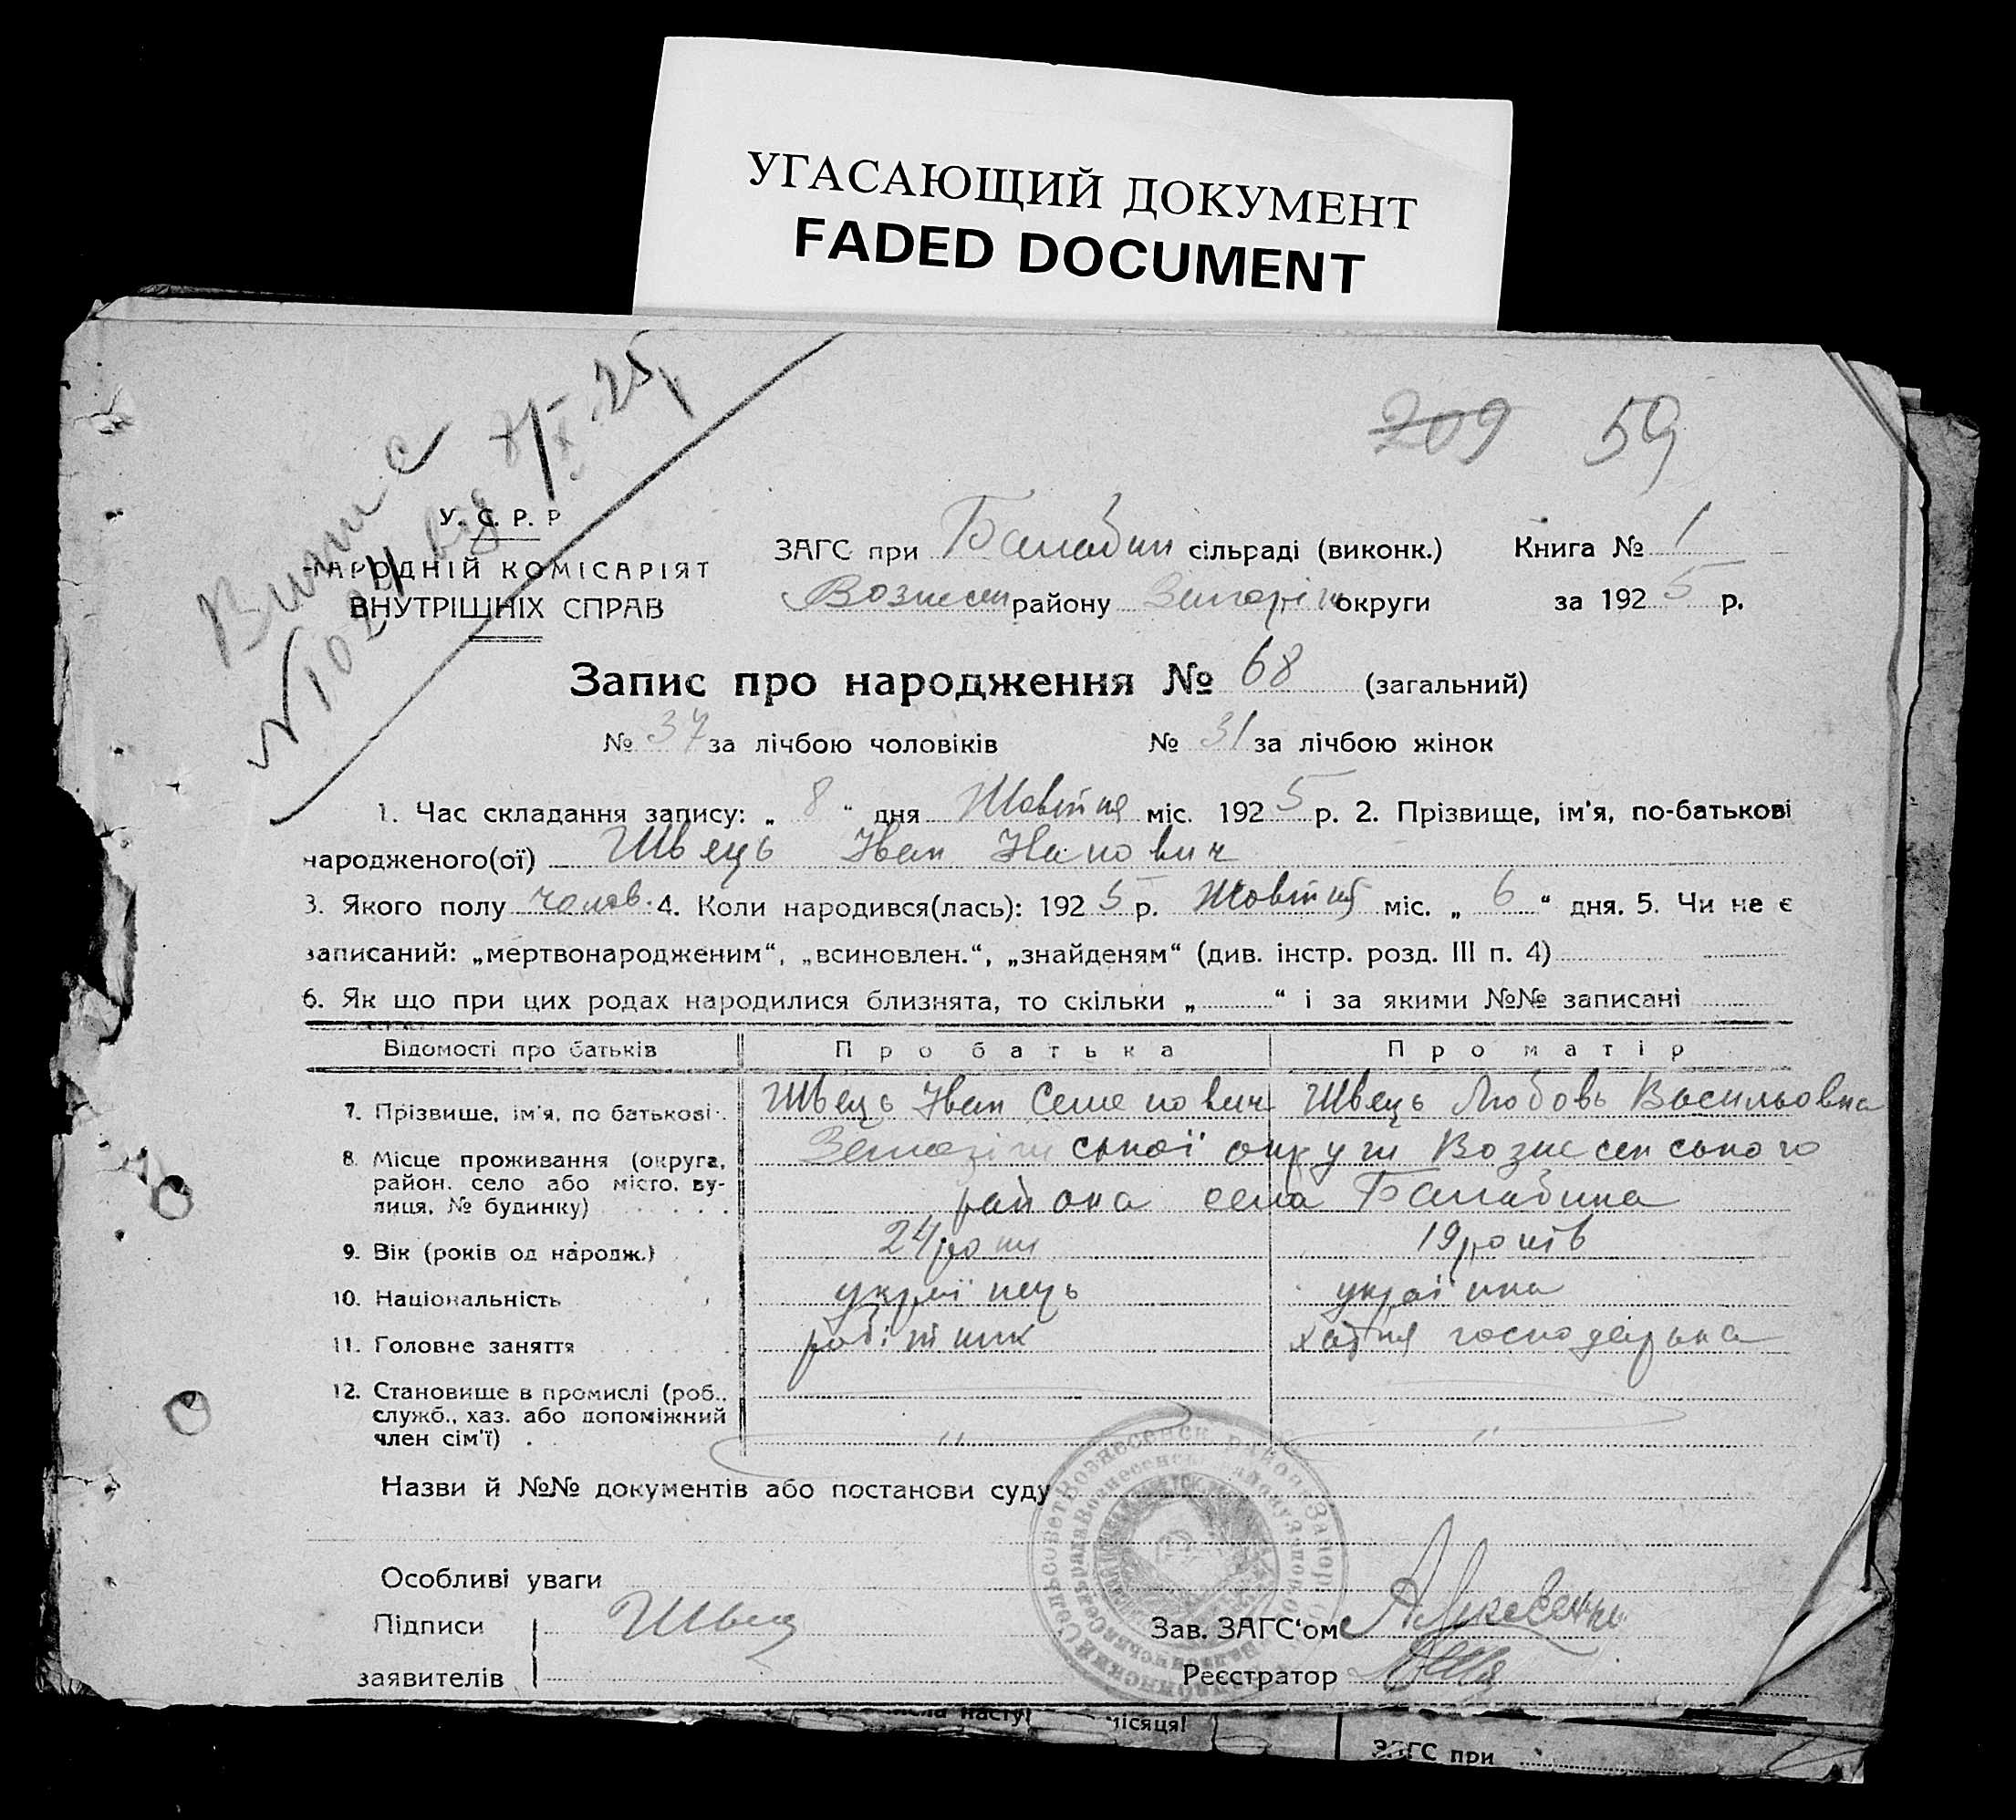 УГАСАЮЩИЙ ДОКУМЕНТ
FADED DOCUMENT
209 59
У. С. Р. Р
НАРОДНІЙ КОМІСАРІЯТ
ВНУТРІШНІХ СПРАВ
ЗАГС при Балабин сільраді (виконк.) Книга № 1
Вознесен району Запоріж округи за 1925 р.
Запис про народження № 68 (загальний)
№ 37 за лічбою чоловіків № 31 за лічбою жінок
1. Час складання запису: „ 8 “ дня Жовтня міс. 1925 р. 2. Прізвище, ім'я, по-батькові
народженого(ої) Швець Іван Іванович
3. Якого полу чолов. 4. Коли народився(лась): 1925 р. Жовтня міс. „ 6 “ дня. 5. Чи не є
записаний: „мертвонародженим“, „всиновлен.“, „знайденям“ (див. інстр. розд. III п. 4)
6. Як що при цих родах народилися близнята, то скільки „ “ і за якими №№ записані
Відомості про батьків Про батька Про матір
7. Прізвище, ім'я, по батькові Швець Іван Семенович Швець Любовь Васильовна
8. Місце проживання (округа, Запоріжської округи Вознесенського
район, село або місто, ву-
лиця, № будинку) района села Балабина
9. Вік (років од народж.) 24 роки 19 років
10. Національність українець українка
11. Головне заняття робітник хатня господарька
12. Становище в промислі (роб.,
служб., хаз. або допоміжний
член сім'ї) " "
Назви й №№ документів або постанови суду
Особливі уваги
Підписи Швец
Зав. ЗАГС'ом
заявителів Реєстратор
місяця!
ЗАГС при